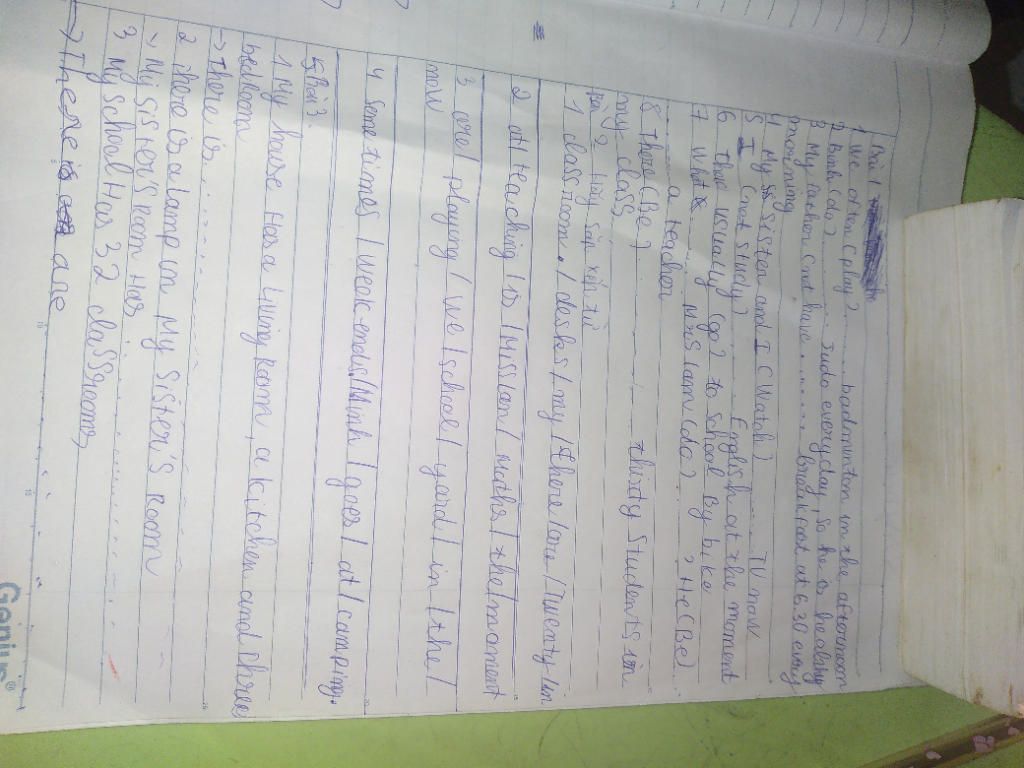 Bài 1
1 We often (play)....... badminton in the afternoon
2 Binh (do)....... Judo everyday, so he is healthy
3 My father (not have.......... breakfast at 6.30 every
morning
4 My Sister and I (Watch)....... TV now
5 I (not study)......... English at the moment
6 they usually (go) to school By bike
7 What ..... Miss Lan (do)....? He (Be)
......... a teacher
8 There (Be)............ thirty students in
my class
Bài 2 Hãy sắp xếp từ
1 classroom / desks / my / there / are / Twenty / in
2 at / teaching / is / Miss Lan / maths / the / moment
3 are / playing / we / school / yard / in / the /
now
4 Sometimes / weekends / Minh / goes / at / camping.
Bài 3
1 My house Has a living room, a kitchen and three
bedroom
→ There is ..............
2 there is a lamp in My sister's room
→ My sister's room Has ..............
3 My school Has 32 classrooms,
→ There are
Genius®